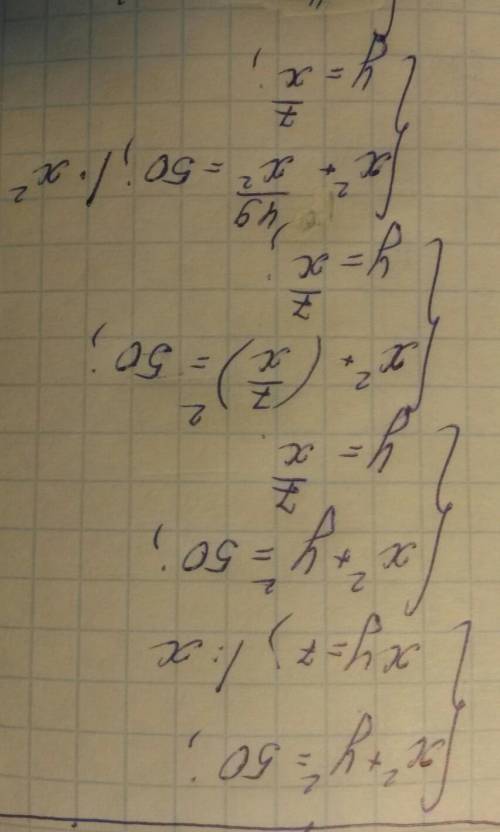 x² + y² = 50;
xy = 7; | : x
x² + y² = 50;
y = 7/x
x² + (7/x)² = 50;
y = 7/x;
x² + 49/x² = 50; | · x²
y = 7/x;